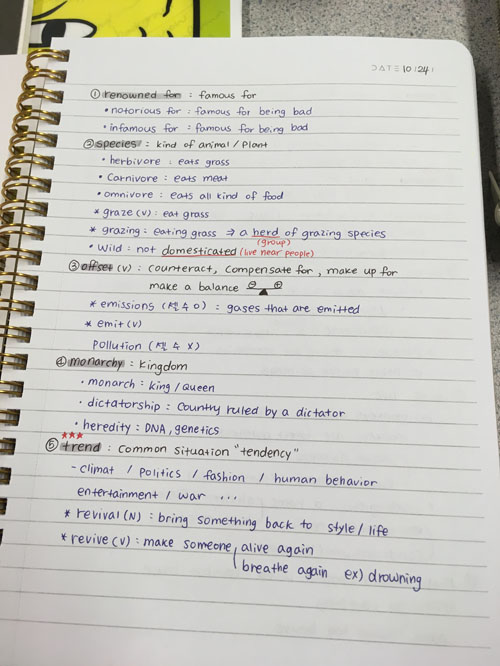 DATE 10 / 24 /
① renowned for : famous for
• notorious for : famous for being bad
• infamous for : famous for being bad
② species : kind of animal / Plant
• herbivore : eats grass
• Carnivore : eats meat
• omnivore : eats all kind of food
* graze (v) : eat grass
* grazing : eating grass ⇒ a herd of grazing species
(group)
• Wild : not domesticated (live near people)
③ offset (v) : counteract, compensate for, make up for
make a balance ⊖ ⊕
* emissions (셀 수 O) : gases that are emitted
* emit (v)
Pollution (셀 수 X)
④ monarchy : Kingdom
• monarch : king / Queen
• dictatorship : Country ruled by a dictator
• heredity : DNA, genetics
★★★
⑤ trend : Common situation "tendency"
- climat / Politics / fashion / human behavior
entertainment / war ...
* revival (N) : bring something back to style / life
* revive (v) : make someone alive again
breathe again ex) drowning